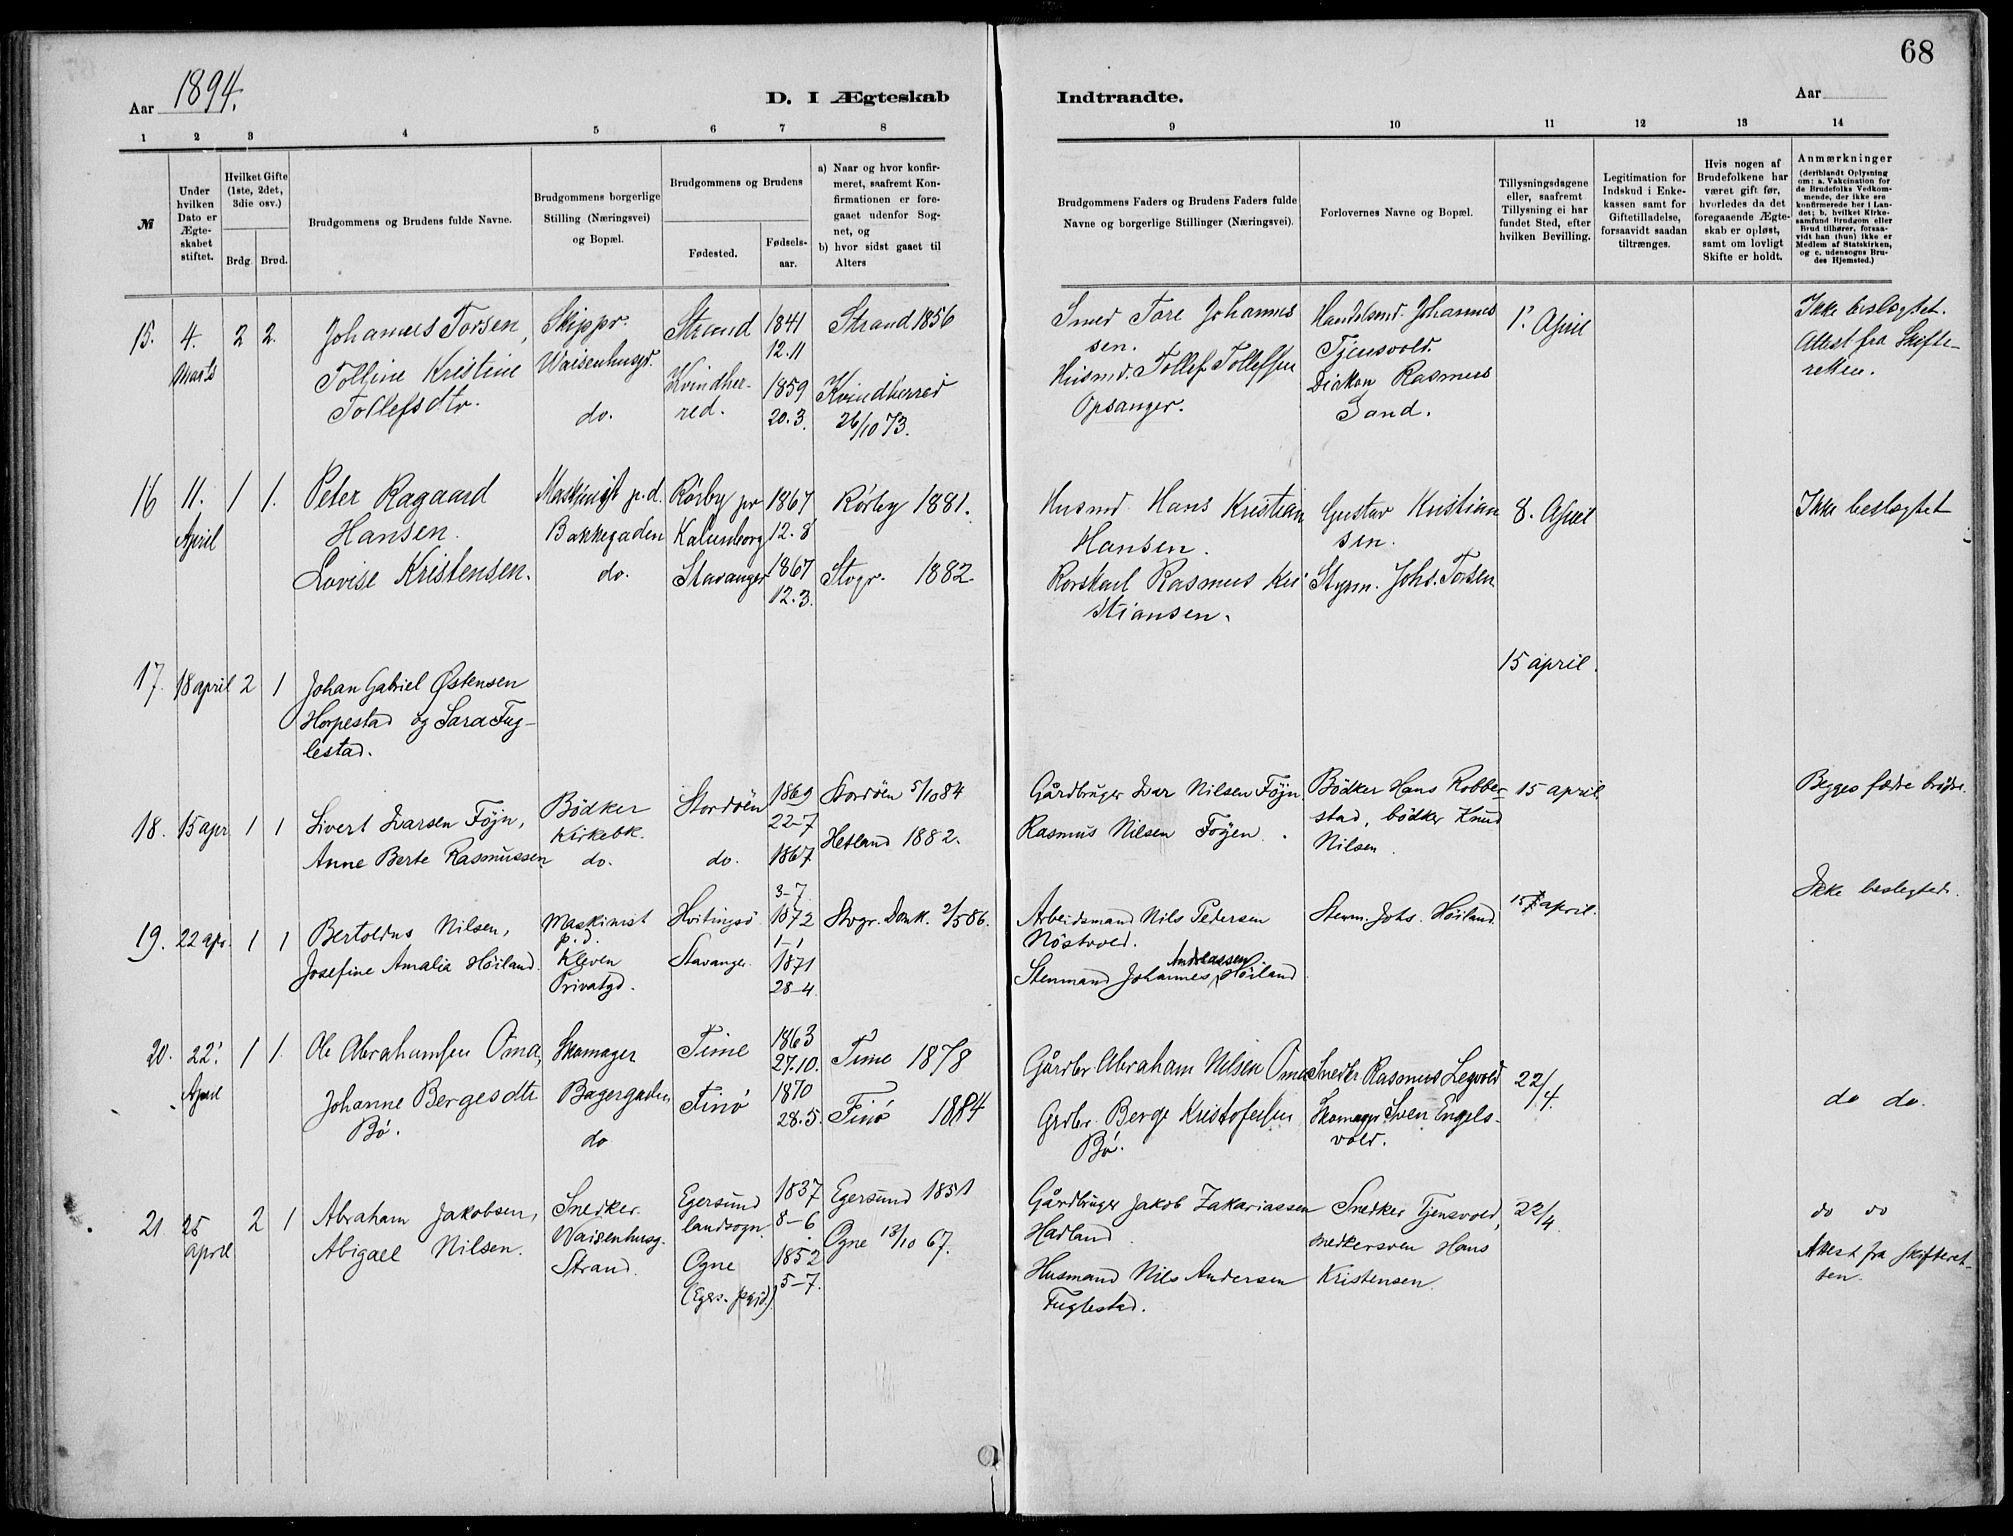 68
Aar 1894.
D. I Ægteskab
Indtraadte.
Aar
1 2 3 4 5 6 7 8
9 10 11 12 13 14
№
Under hvilken Dato er Ægteskabet stiftet.
Hvilket Gifte (1ste, 2det, 3die osv.)
Brdg. Brud.
Brudgommens og Brudens fulde Navne.
Brudgommens borgerlige Stilling (Næringsvei) og Bopæl.
Brudgommens og Brudens
Fødested.
Fødselsaar.
a) Naar og hvor konfirmeret, saafremt Konfirmationen er foregaaet udenfor Sognet, og
b) hvor sidst gaaet til Alters
Brudgommens Faders og Brudens Faders fulde Navne og borgerlige Stillinger (Næringsvei).
Forlovernes Navne og Bopæl.
Tillysningsdagene eller, saafremt Tillysning ei har fundet Sted, efter hvilken Bevilling.
Legitimation for Indskud i Enkekassen samt for Giftetilladelse, forsaavidt saadan tiltrænges.
Hvis nogen af Brudefolkene har været gift før, hvorledes da det foregaaende Ægteskab er opløst, samt om lovligt Skifte er holdt.
Anmærkninger
(deriblandt Oplysning om: a. Vakcination for de Brudefolks Vedkommende, der ikke ere konfirmerede her i Landet; b. hvilket Kirkesamfund Brudgom eller Brud tilhører, forsaavidt han (hun) ikke er Medlem af Statskirken, og c. udensogns Brudes Hjemsted.)
15. 4. 2 2. Johannes Torsen, Skippr. Strand 1841 Strand 1856
12.11 Waisenhusgd.
Tolline Kristine Kvindherred. 1859 Kvindherred
Tollefsdtr. do. 20.3. 26/10 73.
Smed Tore Johannes Handelsmd. Johannes 1' April Ikke beslægtet.
sen. Tjensvold. Attest fra Skifte-
Husmd. Tollef Tollefsen Rasmus retten.
Opsanger. Sand.
16 11. 1 1. Peter Ragaard Maskinist p.d. Rörby pr 1867 Rörby 1881.
April Hansen. Bakkegaden Kalunborg 12.8
Lovise Kristensen. do. Stavanger 1867 Stvgr. 1882
12.3.
Husmd Hans Kristian Gustav Kristian 8. April Ikke beslægtet
Hansen. sen.
Rorskarl Rasmus Kri Styrm. Johs. Torsen
stiansen.
17. 18 april 2 1 Johan Gabriel Østensen 15 april.
Horpestad og Sara Fug-
lestad.
18. 15 apr 1 1 Sivert Ivarsen Föjn, Bödker Stordöen 1869 Stordöen 5/10 84
Kirkebk. 22-7
Anne Berte Rasmussen do. do. 1867 Hetland 1882.
3-7
Gårdbruger Ivar Nilsen Föjn. Bödker Hans Robber- 15 april Begges fædre brödre.
Rasmus Nilsen Föyen. stad, bödker Knud
Nilsen.
19. 22 apr. 1 1 Bertoldus Nilsen, Maskinist Hvitingsö 1872 Stvgr. Domk. 2/5 86.
p.d. 1-1
Josefine Amalia Höiland. Kleven Stavanger. 1871
Privatgd. 28-4.
Arbeidsmand Nils Pedersen Stenm. Johs. Höiland. april. Ikke beslegtede.
Nöstvold.
Andreassen
Stenmand Johannes Höiland
20. 22' 1 1. Ole Abrahamsen Oma, Skomager Time 1863 Time 1878
April 27.10.
Johanne Bergesdtr Bagergaden, Finö 1870 Finö 1884
Bö. do 28.5.
Gårdbr. Abraham Nilsen Oma Snedkr Rasmus Legvold 22/4. do do.
Grdbr. Berge Kristofersen Skomagr Sven Engels-
Bö. vold.
21 25 2 1 Abraham Jakobsen, Snedker. Egersund 1837 Egersund 1851
april Waisenhusg. landsogn. 8-6
Abigael Nilsen. Strand. Ogne 1852 Ogne 13/10 67.
5-7.
Gårdbruger Jakob Zakariassen Snedker Tjensvold, 22/4. do do
Hadland snedkersven Hans Attest fra skifteret-
Husmand Nils Andersen Kristensen. ten.
Fuglestad.